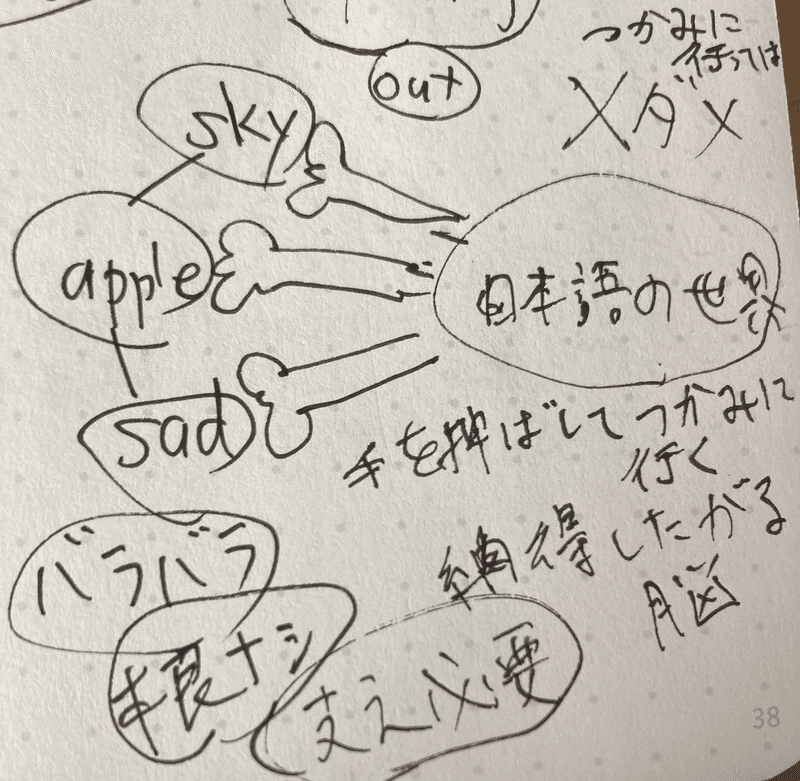 out
つかみに
行っては
ダメ
sky
apple
sad
日本語の世界
手を伸ばしてつかみに
行く
納得したがる
脳
バラバラ
根ナシ
支え必要
38